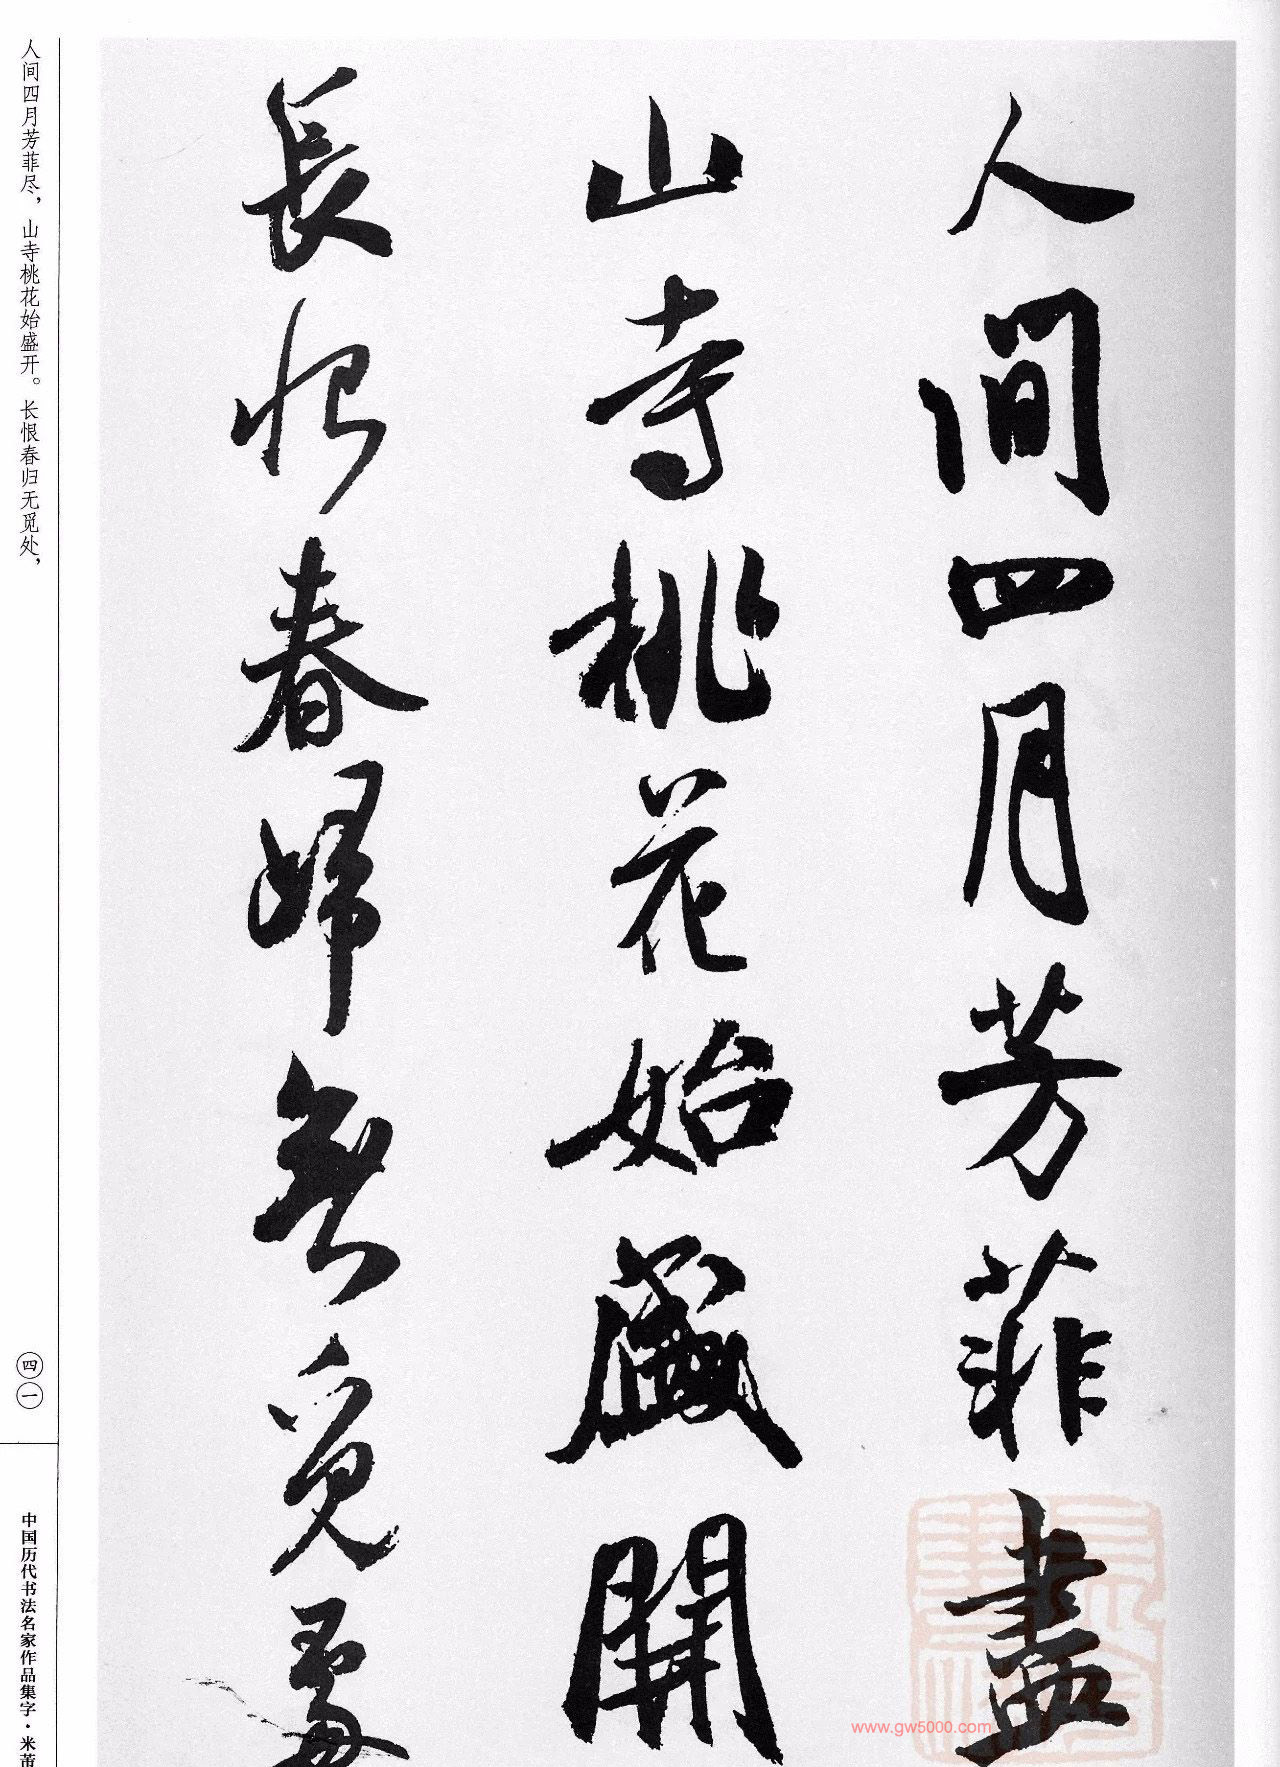 人間四月芳菲盡
山寺桃花始盛開
長恨春歸無覓處
人间四月芳菲尽，山寺桃花始盛开。长恨春归无觅处，
四一
中国历代书法名家作品集字·米芾
www.gw5000.com